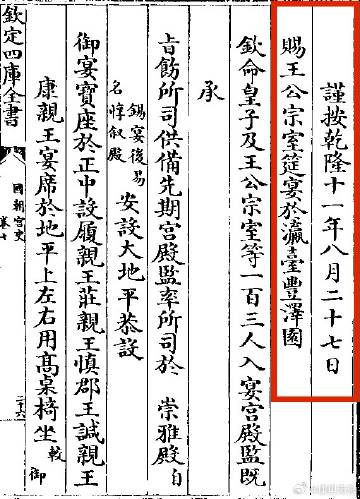 謹按乾隆十一年八月二十七日
賜王公宗室筵宴於瀛臺豐澤園
欽命皇子及王公宗室等一百三人入宴宮殿監既
承
旨飭所司供備先期宮殿監率所司於 崇雅殿 自
錫宴後易
名惇叙殿 安設大地平恭設
御宴寶座於正中設履親王莊親王慎郡王誠親王
康親王宴席於地平上左右用髙桌椅坐 較 御
欽定四庫全書
國朝宮史
卷七
二十六